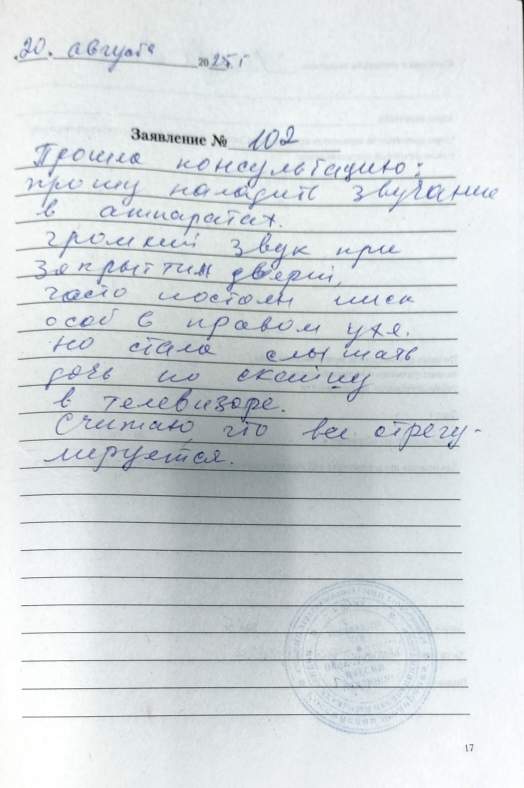 20. августа 2025 г
Заявление № 102
Прошла консультацию:
прошу наладить звучание
в аппаратах.
громкий звук при
закрытии дверей,
часто постоян писк
особ в правом ухе.
но стала слышать
дочь по скайпу
в телевизоре.
Считаю, что все отрегу-
лируется.
17